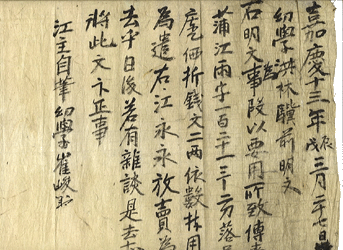 嘉慶十三年戊辰三月二十七日
幼學洪林驥前明文
右明文事段以要用所致傳
蒲江兩字一百二十一三分落
庭価折錢文二两依數捧用
為遣右江永永放賣為
去乎日後若有雜談是去
將此文卞正事
江主自筆幼學崔峻